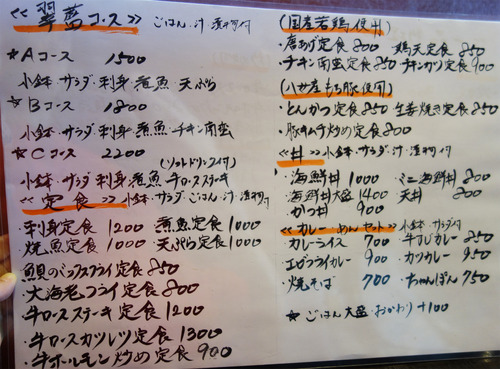 ≪翠藍コース≫ ごはん、汁 漬物付
★Aコース 1500
小鉢・サラダ・刺身・煮魚 天ぷら
★Bコース 1800
小鉢・サラダ・刺身・煮魚・チキン南蛮
★Cコース 2200
(ソフトドリンク付)
小鉢・サラダ 刺身 煮魚 牛ロースステーキ
≪定食≫ 小鉢・サラダ・ごはん、汁・漬物付
・刺身定食 1200 煮魚定食 1000
・焼魚定食 1000 天ぷら定食 1000
・魚貝のミックスフライ定食 850
・大海老フライ定食 800
・牛ロースステーキ定食 1200
・牛ロースカツレツ定食 1300
・牛ホルモン炒め定食 900
(国産若鶏使用)
・唐あげ定食 800 鶏天定食 850
・チキン南蛮定食 850 チキンカツ定食 900
産もち豚使用)
・とんかつ定食 850 生姜焼き定食 850
・豚キムチ炒め定食 800
≪丼≫ 小鉢・サラダ・汁・漬物付
・海鮮丼 1000 ミニ海鮮丼 800
・海鮮丼大盛 1400 天丼 800
・かつ丼 900
≪カレー めんセット≫ 小鉢・サラダ付
・カレーライス 700 牛すじカレー 850
・エビフライカレー 900 カツカレー 950
・焼そば 700 ちゃんぽん 750
★ごはん大盛・おかわり +100